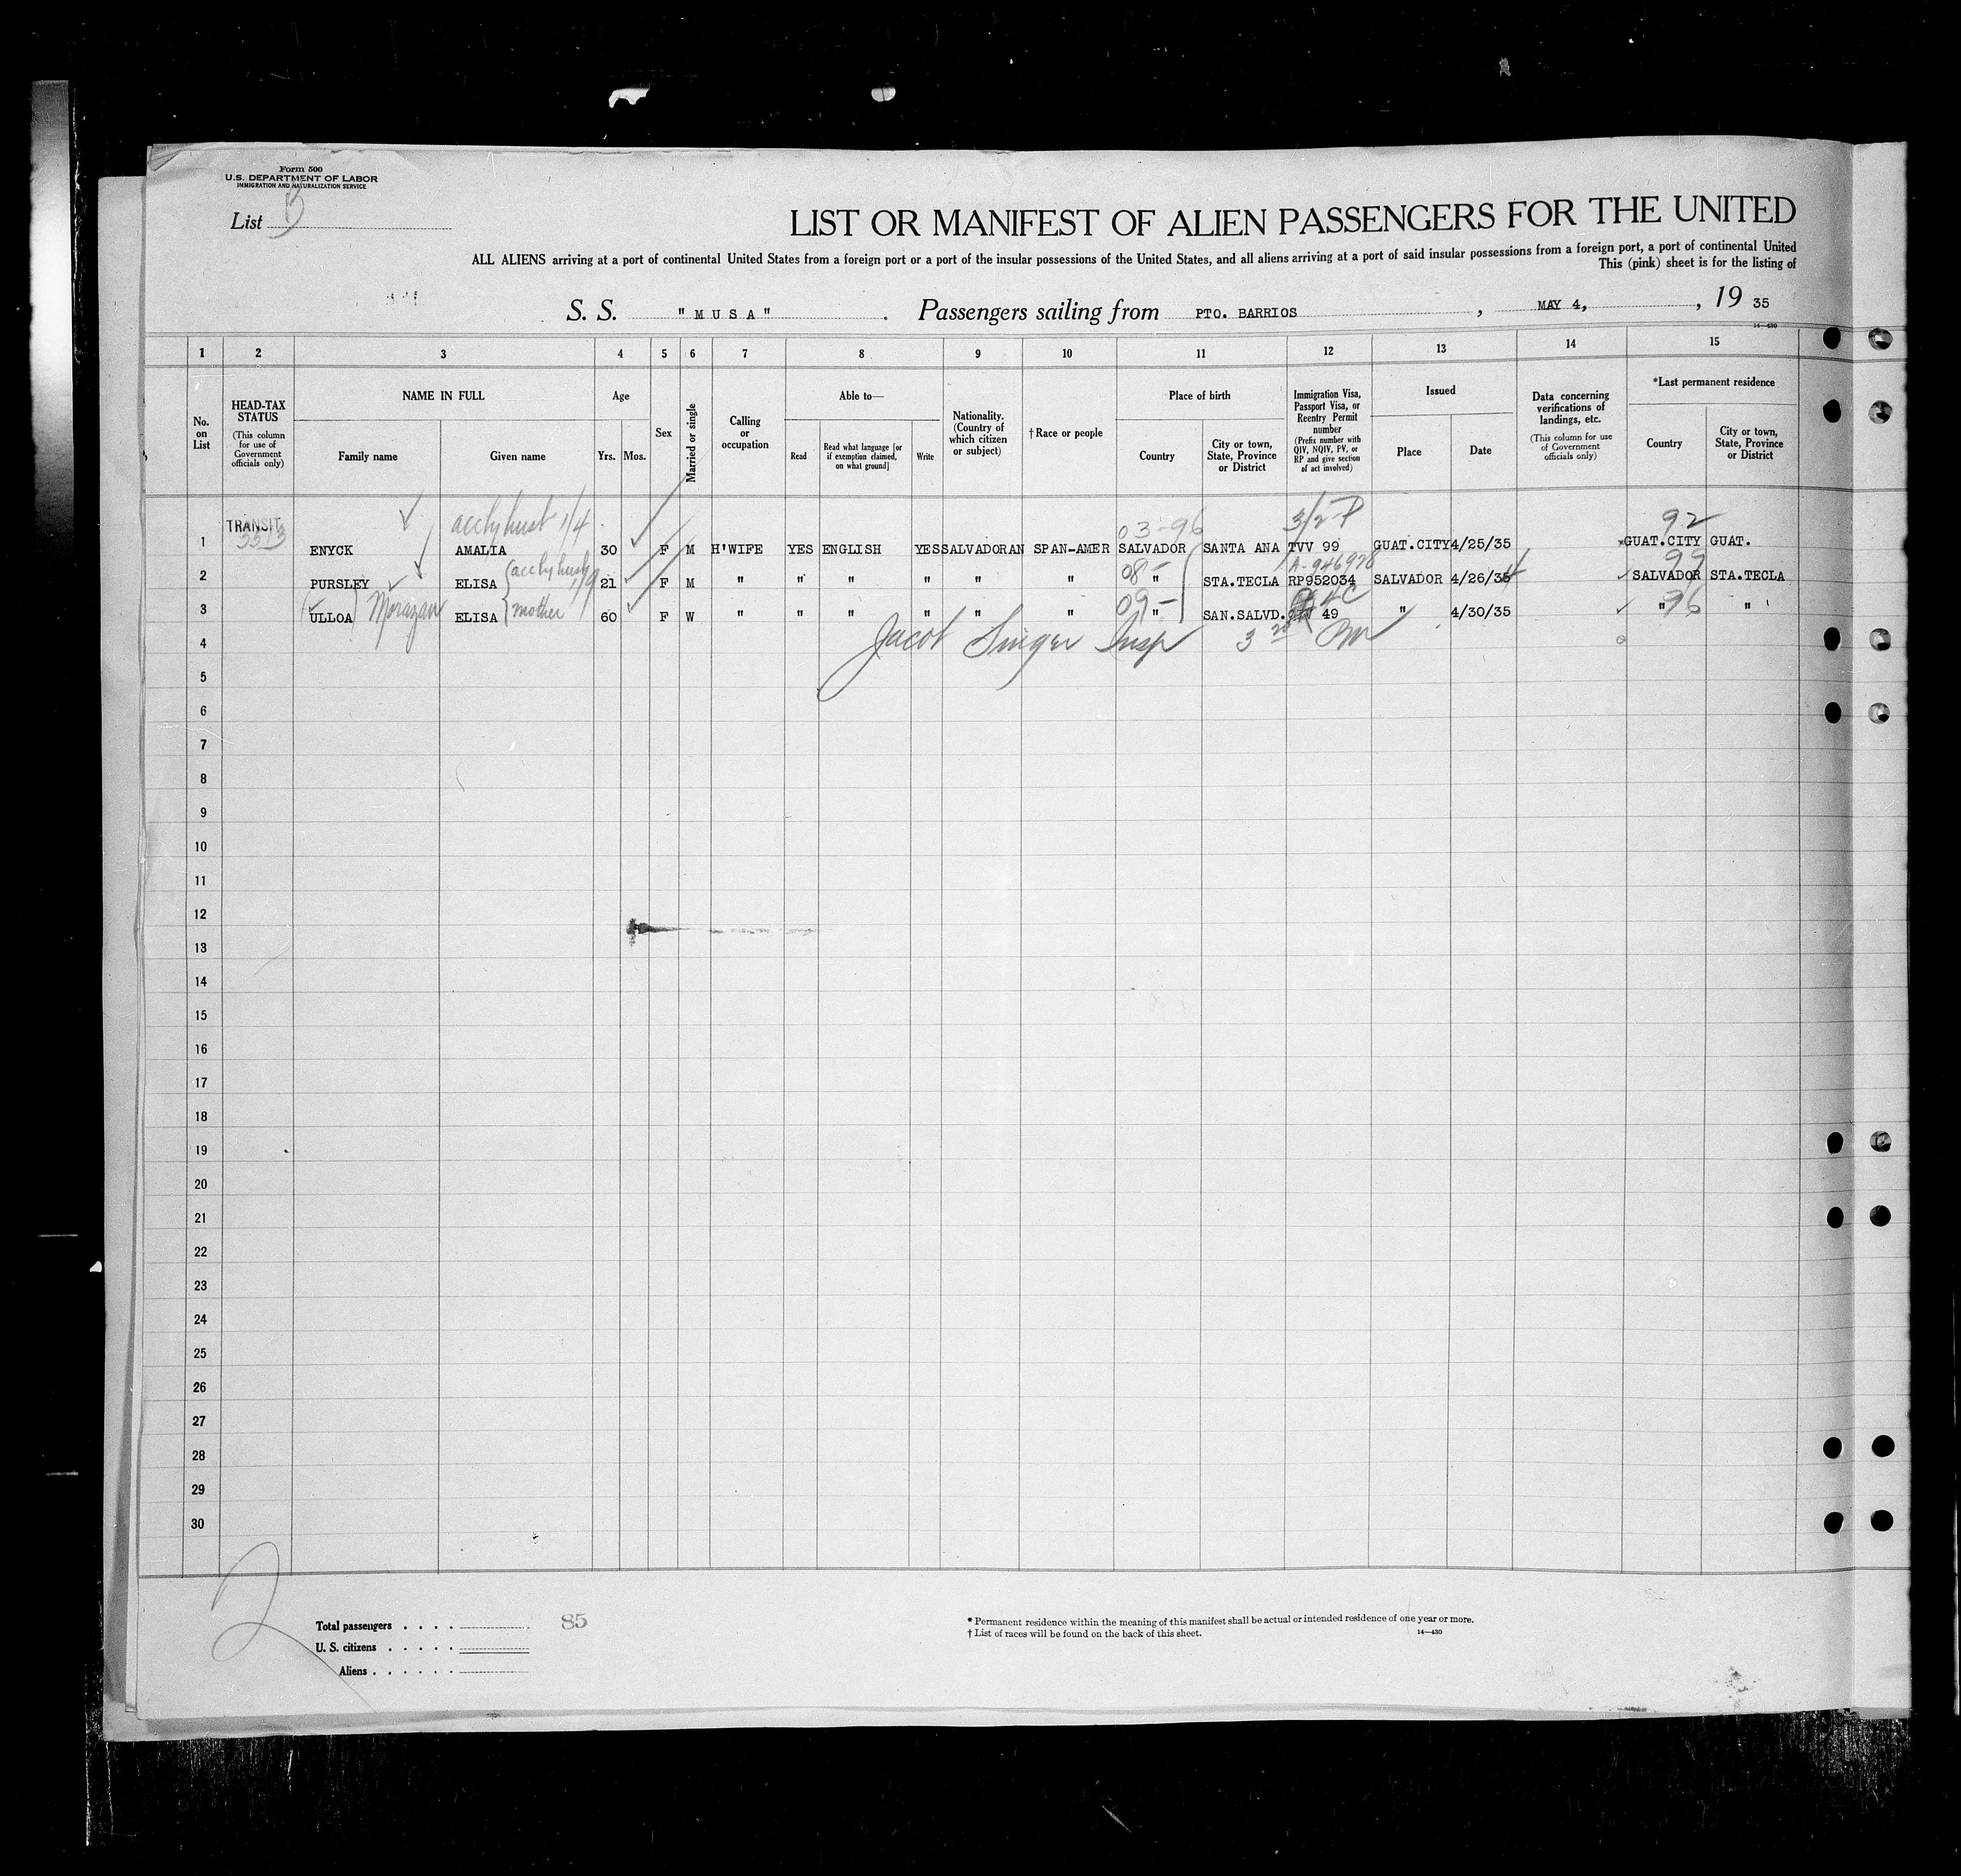 Form 500
U.S. DEPARTMENT OF LABOR
IMMIGRATION AND NATURALIZATION SERVICE
List B
LIST OR MANIFEST OF ALIEN PASSENGERS FOR THE UNITED
ALL ALIENS arriving at a port of continental United States from a foreign port or a port of the insular possessions of the United States, and all aliens arriving at a port of said insular possessions from a foreign port, a port of continental United
This (pink) sheet is for the listing of
S. S. "MUSA". Passengers sailing from PTO. BARRIOS, MAY 4, , 19 35
14—430
1 2 3 4 5 6 7 8 9 10 11 12 13 14 15
No. on List
HEAD-TAX STATUS (This column for use of Government officials only)
NAME IN FULL
Family name
Given name
Age
Yrs.
Mos.
Sex
Married or single
Calling or occupation
Able to—
Read
Read what language [or if exemption claimed, on what ground]
Write
Nationality. (Country of which citizen or subject)
†Race or people
Place of birth
Country
City or town, State, Province or District
Immigration Visa, Passport Visa, or Reentry Permit number (Prefix number with QIV, NQIV, PV, or RP and give section of act involved)
Issued
Place
Date
Data concerning verifications of landings, etc. (This column for use of Government officials only)
*Last permanent residence
Country
City or town, State, Province or District
TRANSIT acc by hust 1/4 03-96 3/2 P 92
1 ENYCK AMALIA 30 F M H'WIFE YES ENGLISH YES SALVADORAN SPAN-AMER SALVADOR SANTA ANA TVV 99 GUAT.CITY 4/25/35 GUAT.CITY GUAT.
acc by husb 1/9 08- A-946978 99
2 PURSLEY ELISA 21 F M " " " " " " " STA.TECLA RP952034 SALVADOR 4/26/35 SALVADOR STA.TECLA
Morazan mother 09- 4C 96
3 ULLOA ELISA 60 F W " " " " " " " SAN.SALVD. 49 " 4/30/35 " "
4 Jacob Singer Insp 3 20 PM
5
6
7
8
9
10
11
12
13
14
15
16
17
18
19
20
21
22
23
24
25
26
27
28
29
30
2
Total passengers . . . .
85
U. S. citizens . . . . .
Aliens . . . . . .
* Permanent residence within the meaning of this manifest shall be actual or intended residence of one year or more.
† List of races will be found on the back of this sheet.
14—430